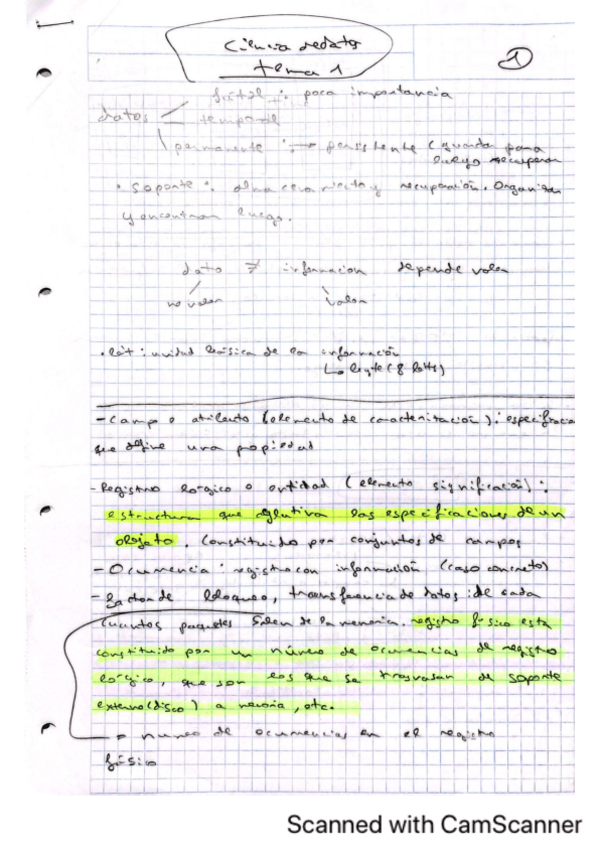 Ciencia de datos
tema 1
1
fútil : poca importancia
datos temporal
permanente : → persistente (guarda para
luego recuperar
• soporte : almacenamiento y recuperación. Organizar
y encontrar luego.
dato ≠ información depende valor
no valor valor
• bit : unidad básica de la información
↳ byte (8 bits)
- Campo o atributo (elemento de caracterización) : especificación
que define una propiedad
- Registro lógico o entidad (elemento significación) :
estructura que aglutina las especificaciones de un
objeto. Constituido por conjuntos de campos
- Ocurrencia : registro con información (caso concreto)
- Factor de bloqueo, transferencia de datos : de cada
cuantos paquetes salen de la memoria. registro físico esta
constituido por un número de ocurrencias de registro
lógico, que son los que se trasvasan de soporte
externo (disco) a memoria, etc.
→ numero de ocurrencias en el registro
físico
Scanned with CamScanner